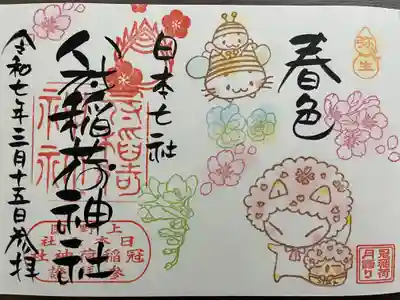 春色
弥生
日本七社
冠稲荷神社
令和七年三月十五日参拝
上野国
日本七社
冠稲荷神社
冠稲荷
月詣り